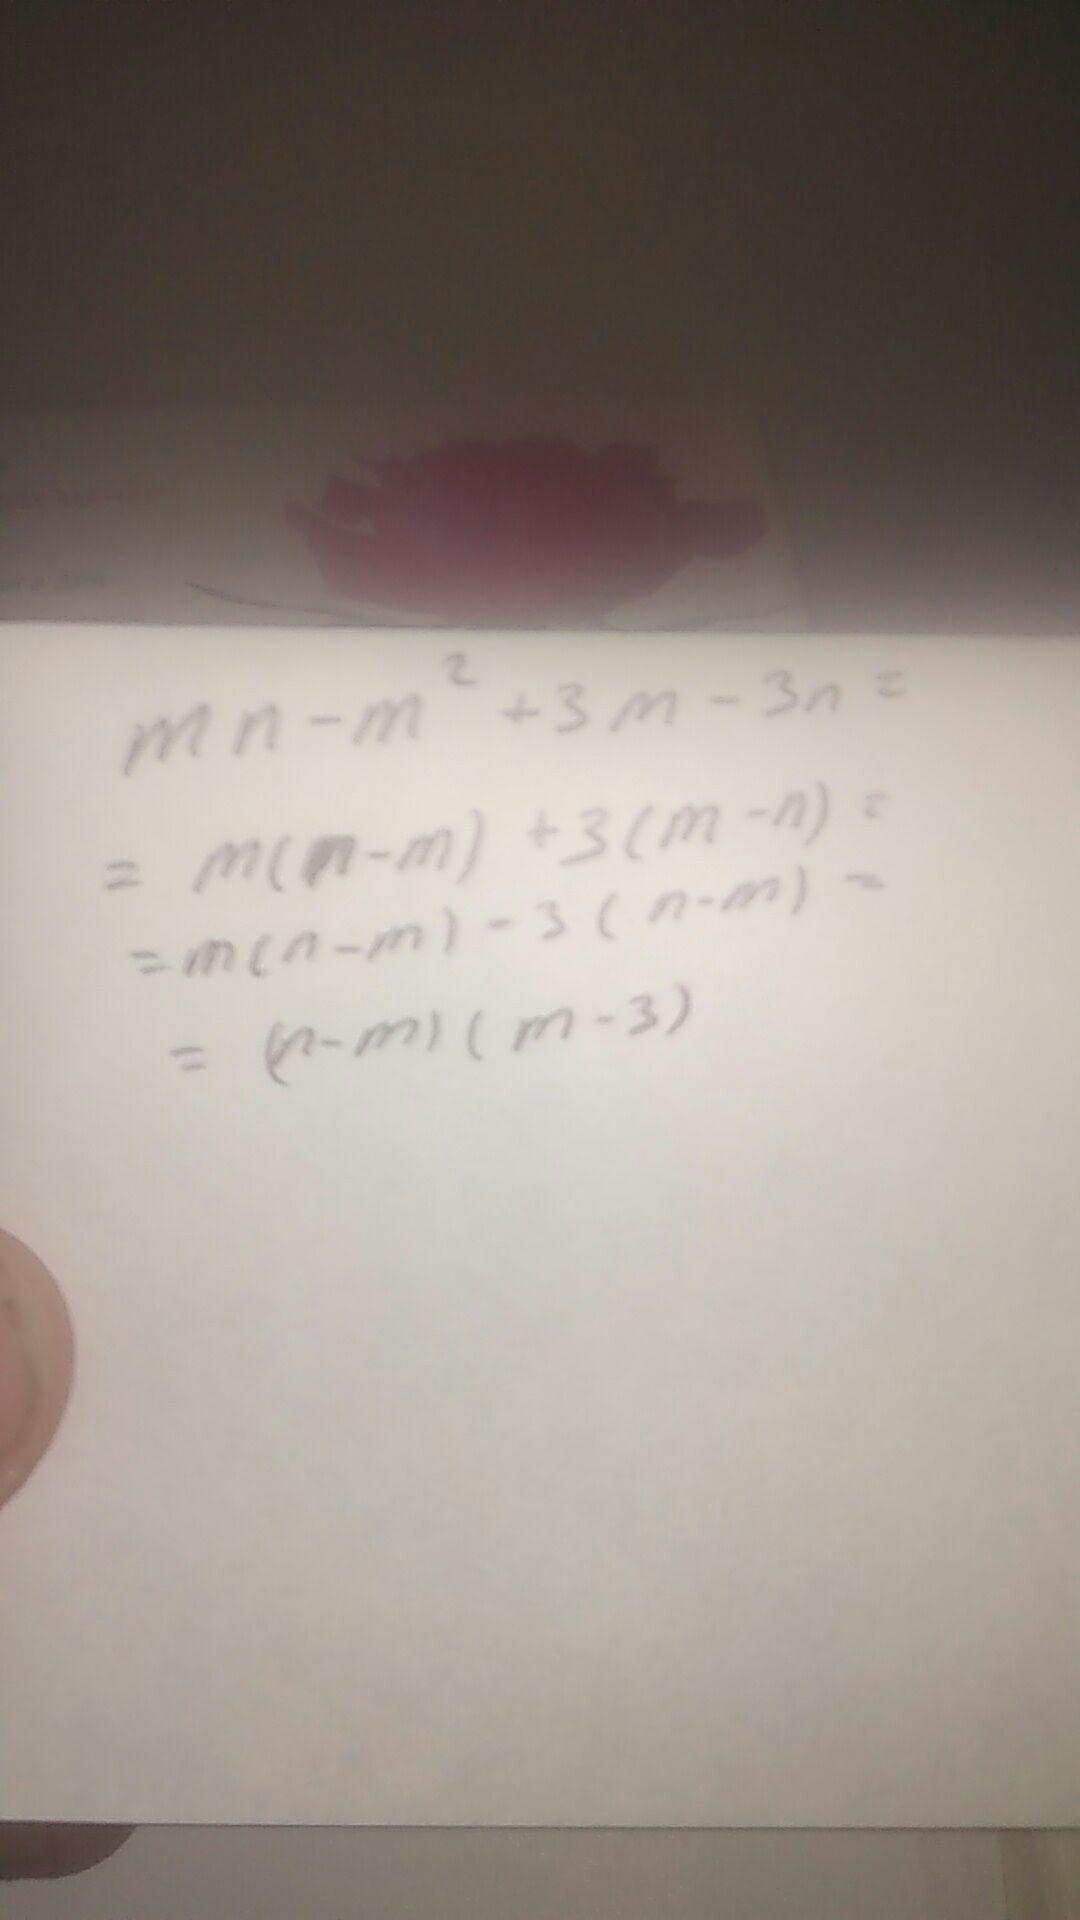 mn-m² +3m-3n=
= m(n-m) +3(m-n) =
=m(n-m)-3(n-m) =
= (n-m)(m-3)